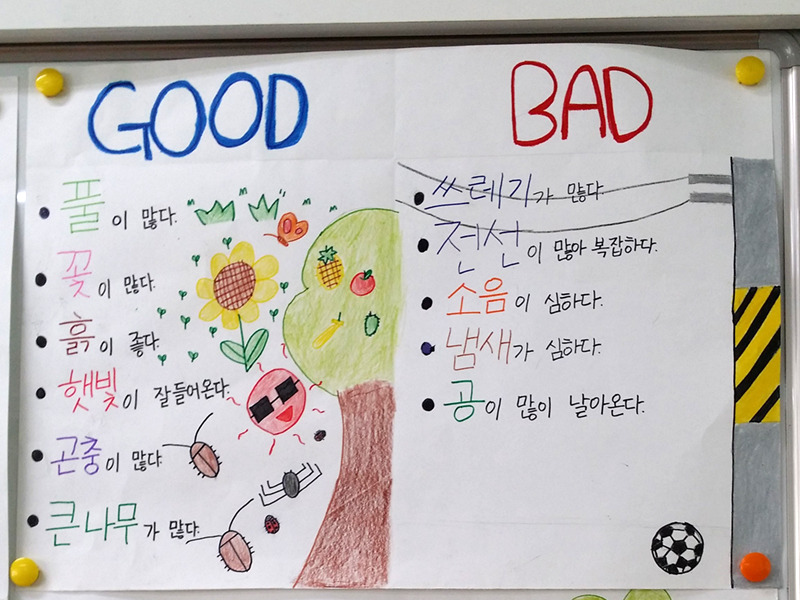 GOOD
풀이 많다.
꽃이 많다.
흙이 좋다.
햇빛이 잘들어온다.
곤충이 많다.
큰나무가 많다.
BAD
쓰레기가 많다.
전선이 많아 복잡하다.
소음이 심하다.
냄새가 심하다.
공이 많이 날아온다.